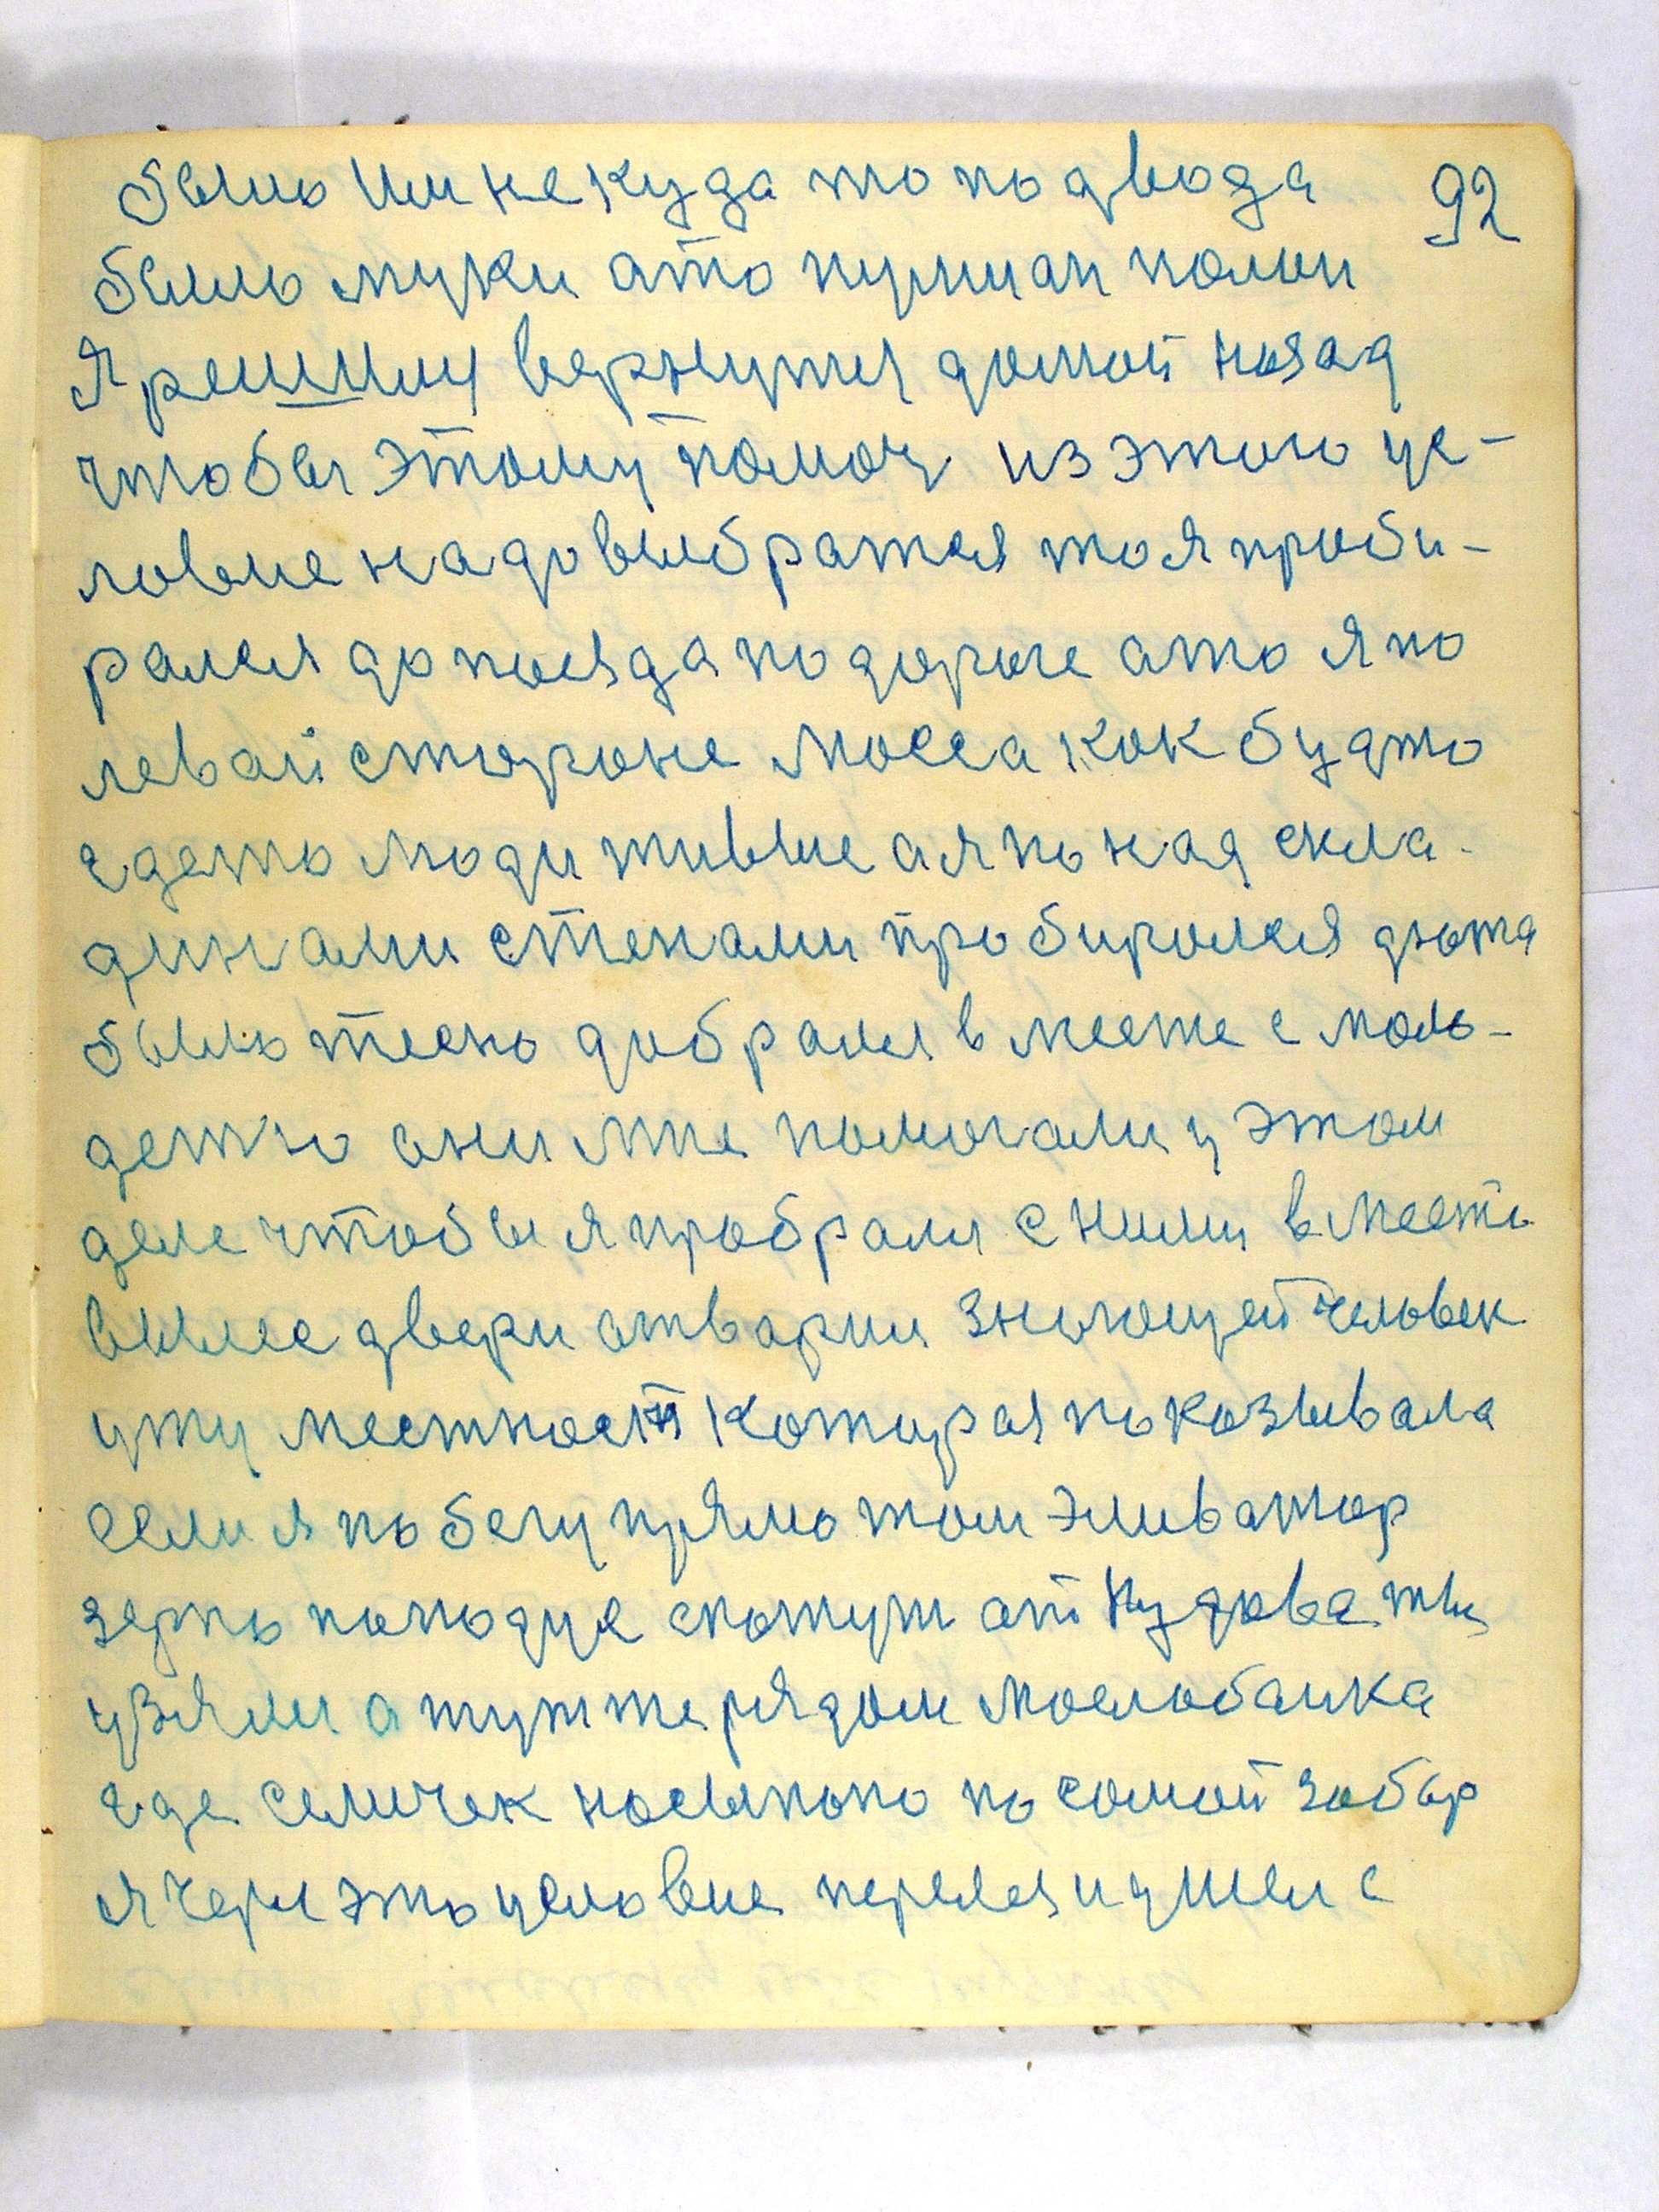 было Или не куда то по два да 92
было муки а то пулман полон
Я решил вернутся домой назад
чтобы этому помоч из этого ус-
ловие надо выбратся то я проби-
рался до поезда по дороге а то я по
левай стороне Масса как будто
где то люди живые а я по над скла-
динами стенами пробирался даже
было тесно добрался в месте с моло-
дежю они мне помогали у этом
деле чтобы я пробрался с ними в место
выше двери отварил знающей человек
уту местност Которая показывала
если я побегу прямо там эливатор
зерно попадуе скажут от Кудова ты
узял а тут же рядом Маслобаика
где семичек насыпоно по самой забор
я через это условие перелез и ушел с